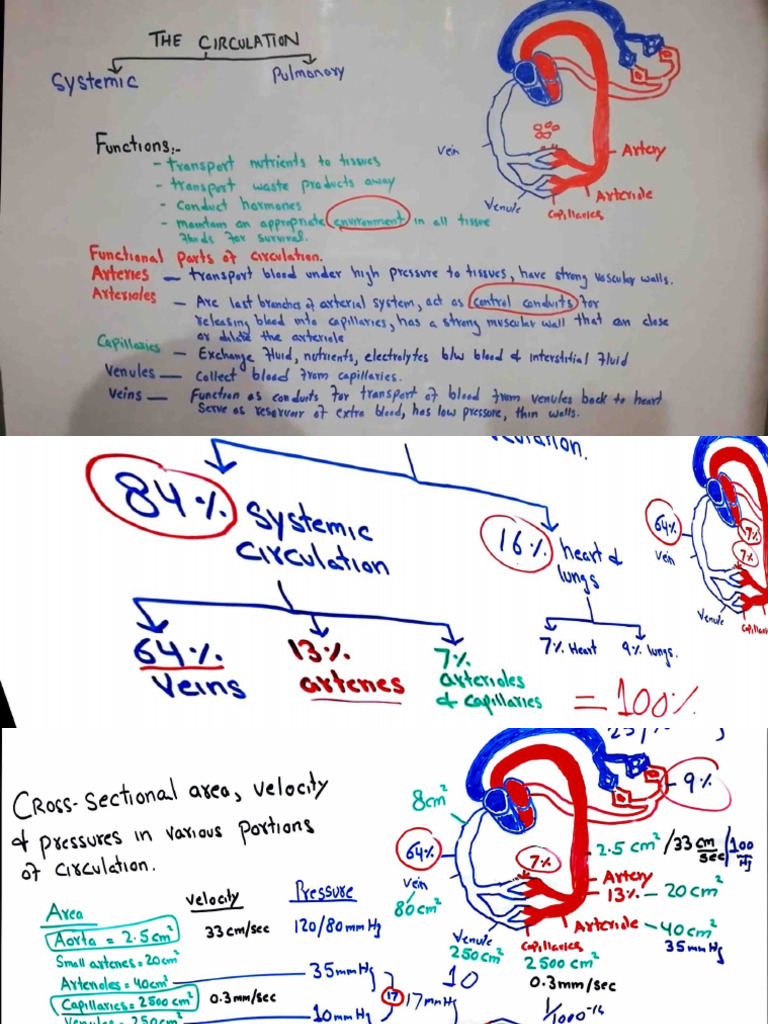 THE CIRCULATION
Systemic
Pulmonary
Functions:-
- transport nutrients to tissues
- transport waste products away
- conduct hormones
- maintain an appropriate environment in all tissue
fluids for survival.
Vein
Artery
Arteriole
Venule
Capillaries
Functional Parts of circulation.
Arteries — transport blood under high pressure to tissues, have strong vascular walls.
Arterioles - Are last branches of arterial system, act as control conduits for
releasing blood into capillaries, has a strong muscular wall that can close
or dilate the arteriole
Capillaries — Exchange fluid, nutrients, electrolytes b/w blood & interstitial fluid
Venules — Collect blood from capillaries.
Veins — Function as conduits for transport of blood from venules back to heart
Serve as reservoir of extra blood, has low pressure, thin walls.
84%
Systemic
circulation
16%
heart &
lungs
64%
Veins
13%
arteries
7%
arterioles
& capillaries
7% Heart
9% lungs.
= 100%
64%
Vein
7%
7%
Venule
CROSS-Sectional area, velocity
& pressures in various portions
of circulation.
Area
velocity
Pressure
Aorta = 2.5cm²
33cm/sec
120/80mmHg
Small arteries = 20cm²
Arterioles = 40cm²
35mmHg
Capillaries = 2500cm²
0.3mm/sec
17
17mmHg
10mmHg
Venules = 250cm²
8cm²
64%
Vein
80cm²
7%
9%
2.5cm² /33cm/sec /100
Hg
Artery
13% - 20cm²
Arteriole - 40cm²
35mmHg
Venule
250cm²
Capillaries
2500cm²
0.3mm/sec
10